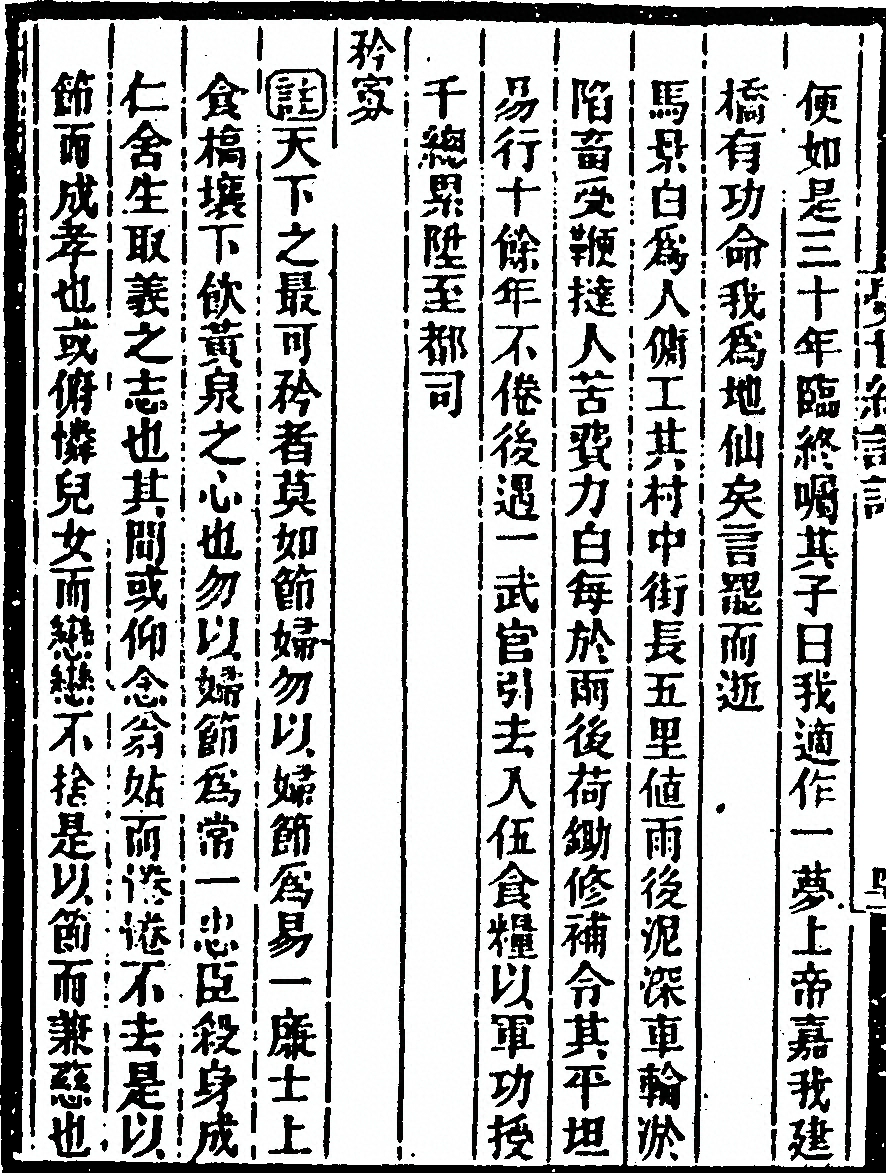 便如是三十年臨終囑其子曰我適作一夢上帝嘉我建
橋有功命我爲地仙矣言罷而逝
馬景白爲人傭工其村中街長五里値雨後泥深車輪淤
陷畜受鞭撻人苦費力白每於雨後荷鋤修補令其平坦
易行十餘年不倦後遇一武官引去入伍食糧以軍功授
千總累陞至都司
矜寡
註天下之最可矜者莫如節婦勿以婦節爲易一廉士上
食槁壤下飲黃泉之心也勿以婦節爲常一忠臣殺身成
仁舍生取義之志也其間或仰念翁姑而惓惓不去是以
節而成孝也或俯憐兒女而戀戀不捨是以節而兼慈也